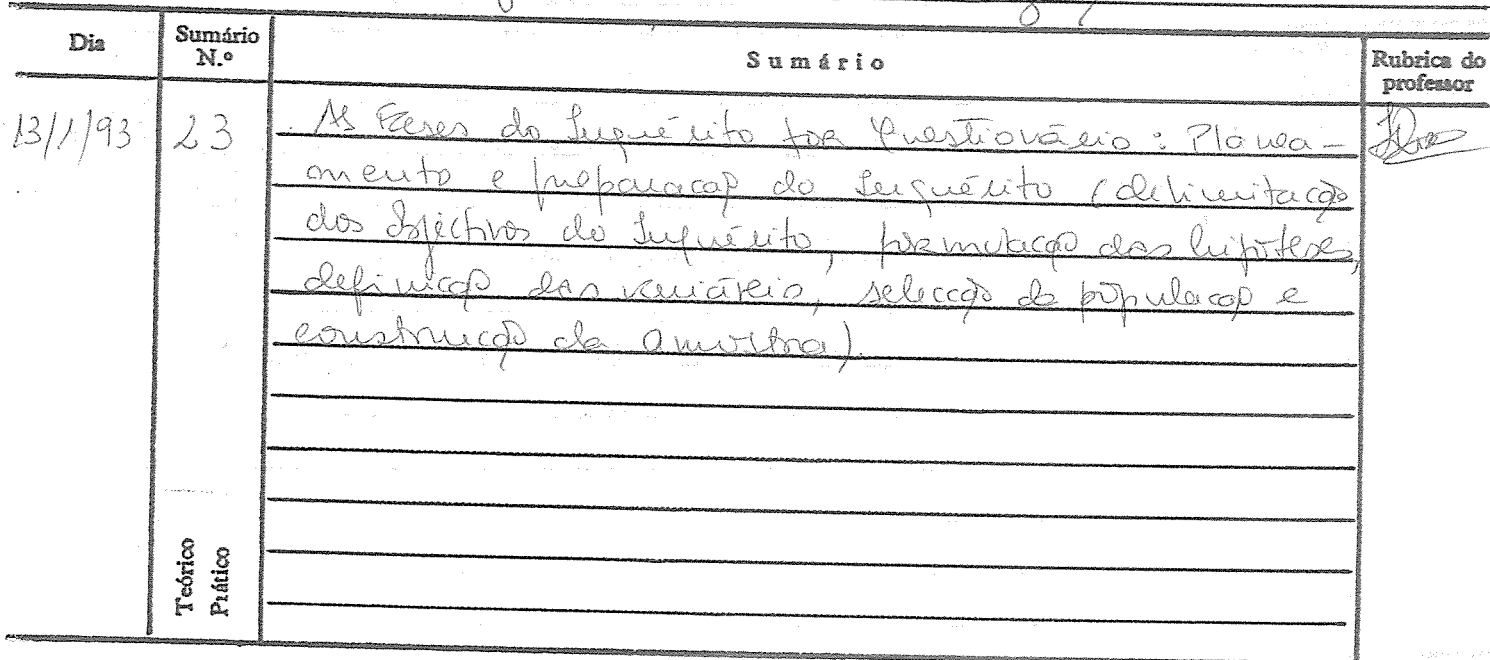 Dia Sumário N.º Sumário Rubrica do professor
13/1/93 23 As Fases do Inquérito por Questionário: Planea-
mento e preparação do Inquérito (delimitação
dos Objectivos do Inquérito, formulação das hipóteses,
definição das variáveis, selecção da população e
construção da amostra).
Teórico
Prático